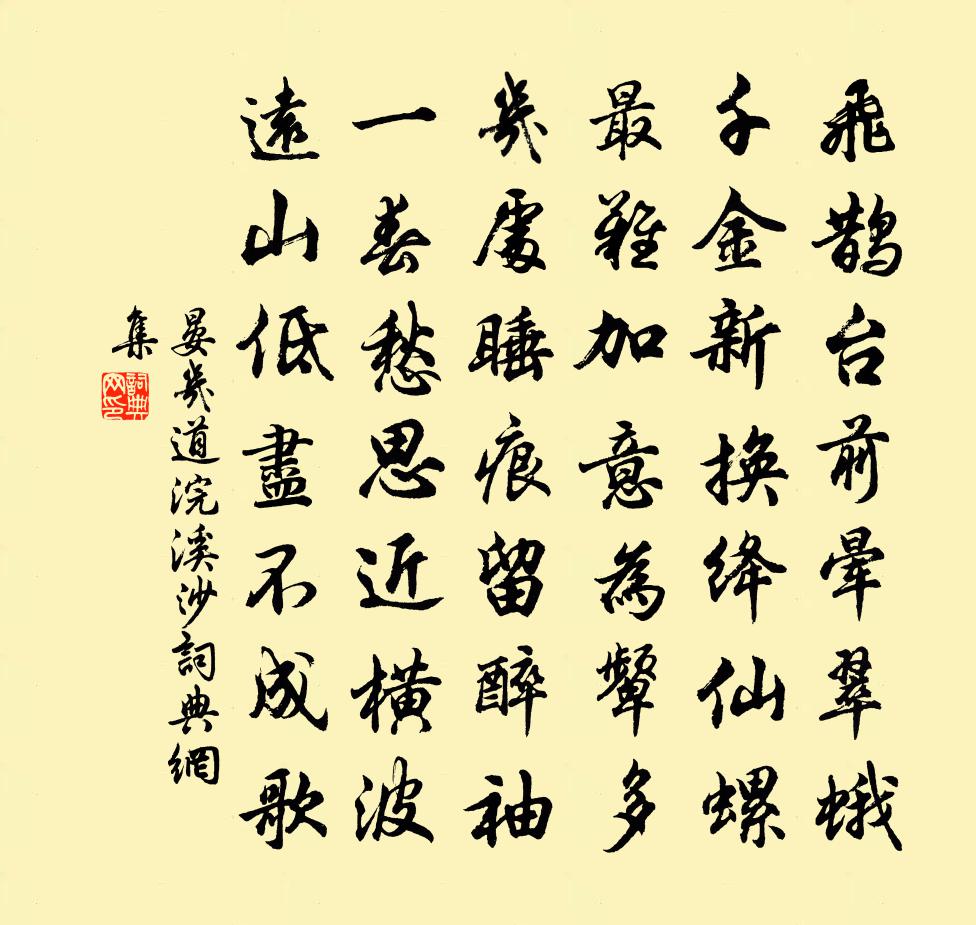 飛鵲台前暈翠蛾
千金新換绛仙螺
最難加意為顰多
幾處睡痕留醉袖
一春愁思近橫波
遠山低盡不成歌
晏幾道浣溪沙詞典網
集
詞典
网印